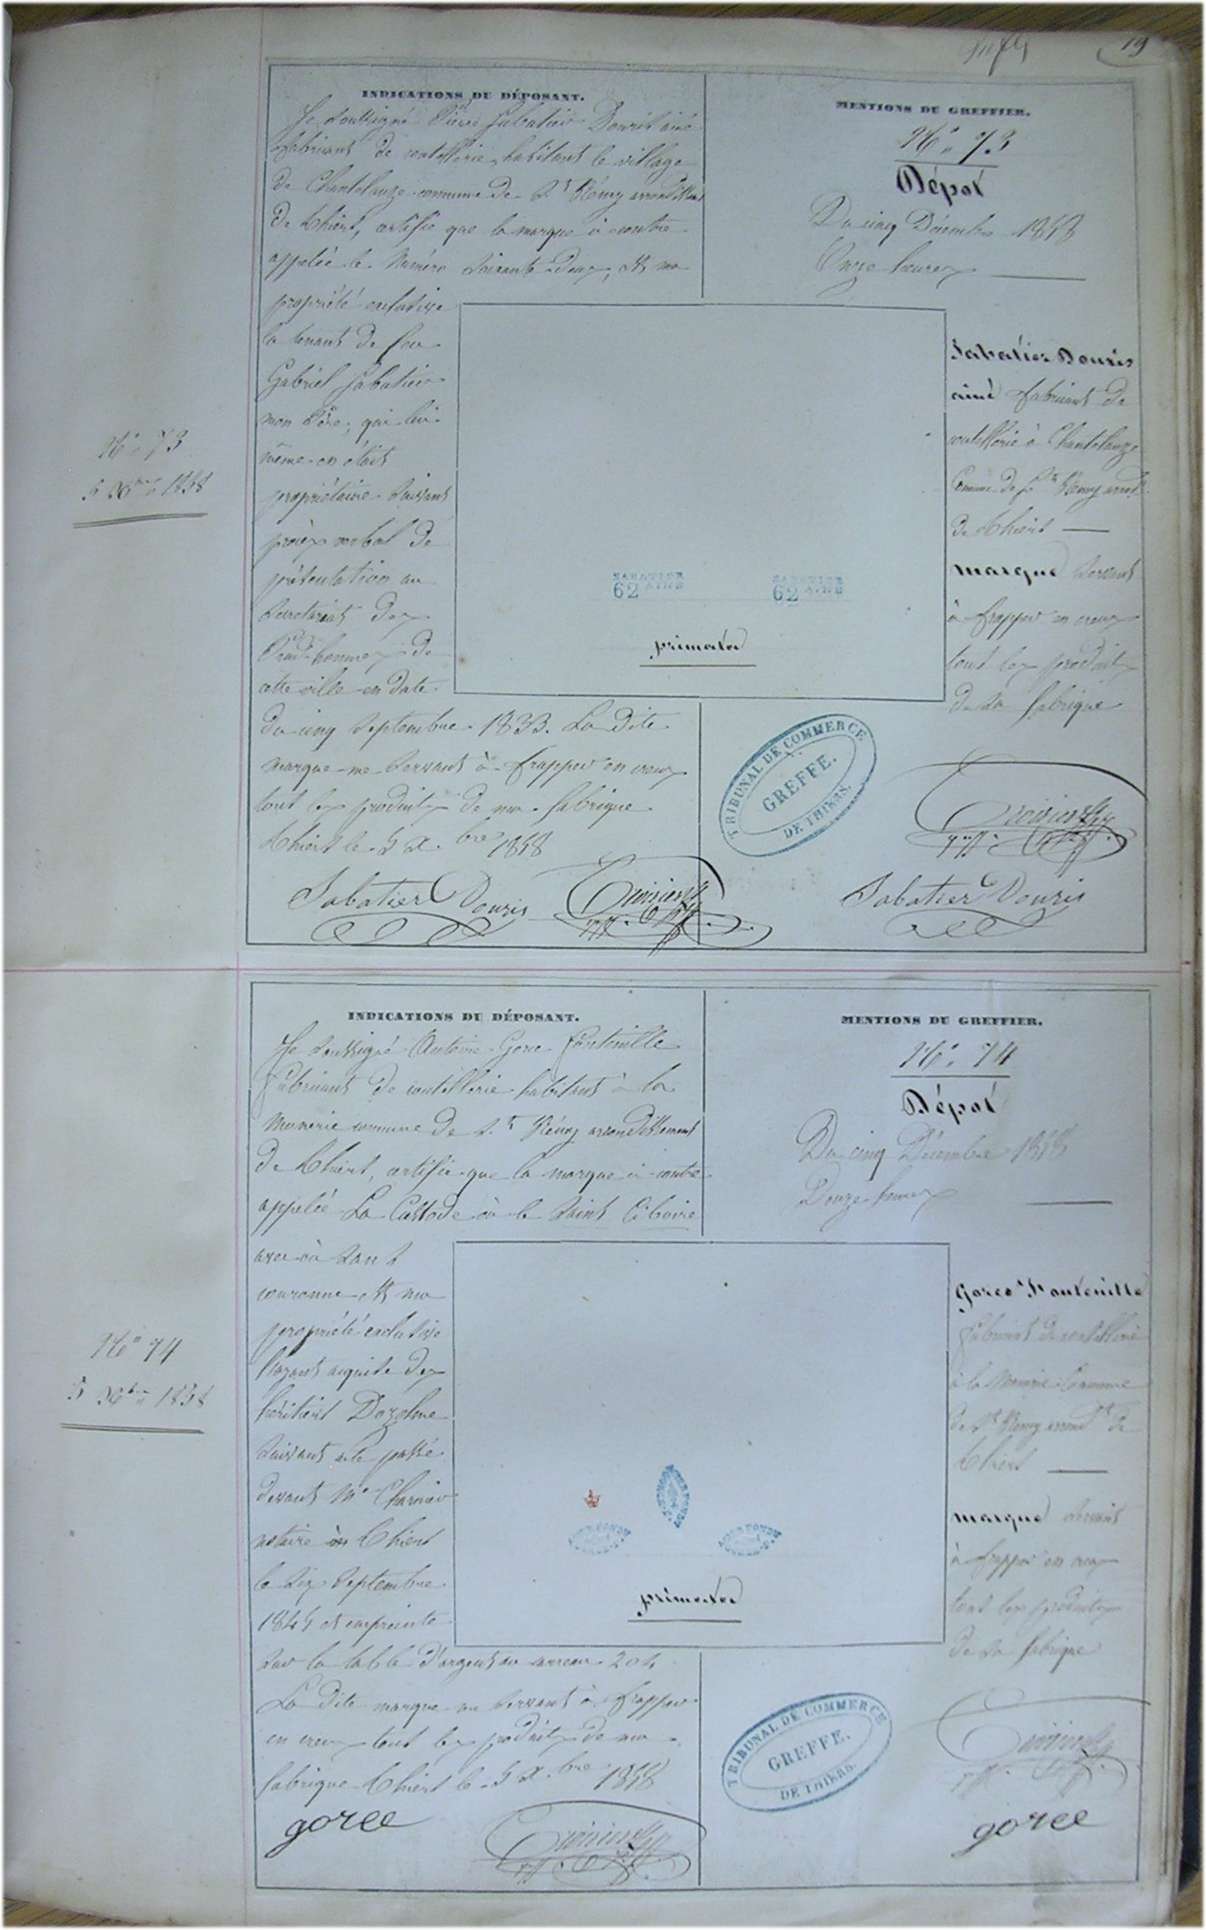 19
N.º 73
5 Xbre 1858
INDICATIONS DU DÉPOSANT.
Je soussigné Pierre Sabatier Douris ainé
fabricant de coutellerie habitant le village
de Chantelauze commune de St Rémy arrondissent
de Thiers, certifie que la marque ci contre
appelée le Numéro Soixante-deux, est ma
propriété exclusive
la tenant de feu
Gabriel Sabatier
mon Père, qui lui
même en était
propriétaire suivant
procès verbal de
présentation au
Secrétariat des
Prud'hommes de
cette ville en date
du cinq Septembre 1833. La dite
marque me servant à frapper en creux
tout les produits de ma fabrique
Thiers le 5 Xbre 1858
Sabatier Douris
MENTIONS DU GREFFIER.
N.º 73
Dépot
Du cinq Décembre 1858
Onze heures
SABATIER
62 AINE
SABATIER
62 AINE
primata
Sabatier Douris
ainé fabricant de
coutellerie à Chantelauze
Comune de St Remy arrondt
de Thiers
marque servant
à frapper en creux
tout les produits
de sa fabrique
TRIBUNAL DE COMMERCE
GREFFE.
DE THIERS.
Sabatier Douris
N.º 74
5 Xbre 1858
INDICATIONS DU DÉPOSANT.
Je soussigné Antoine Gorce Fontenille
Fabricant de coutellerie habitant à la
commune de St Rémy arrondissement
de Thiers, certifie que la marque ci contre
appelée La Custode où le Saint Ciboire
avec où sans
couronne est ma
propriété exclusive
l'ayant acquise des
héritiers Dozolme
suivant acte passé
devant Me
notaire à Thiers
le dix Septembre
et empreinte
sur la table d'argent au carreau 204
La dite marque me servant à frapper
en creux tout les produits de ma
fabrique Thiers le 5 Xbre 1858
gorce
MENTIONS DU GREFFIER.
N.º 74
Dépot
Du cinq Décembre 1858
Douze heures
primata
Gorce Fontenille
Fabricant de coutellerie
à la Commune
de St Remy arrondt de
Thiers
marque servant
à frapper en creux
tout les produits
de sa fabrique
TRIBUNAL DE COMMERCE
GREFFE.
DE THIERS.
gorce